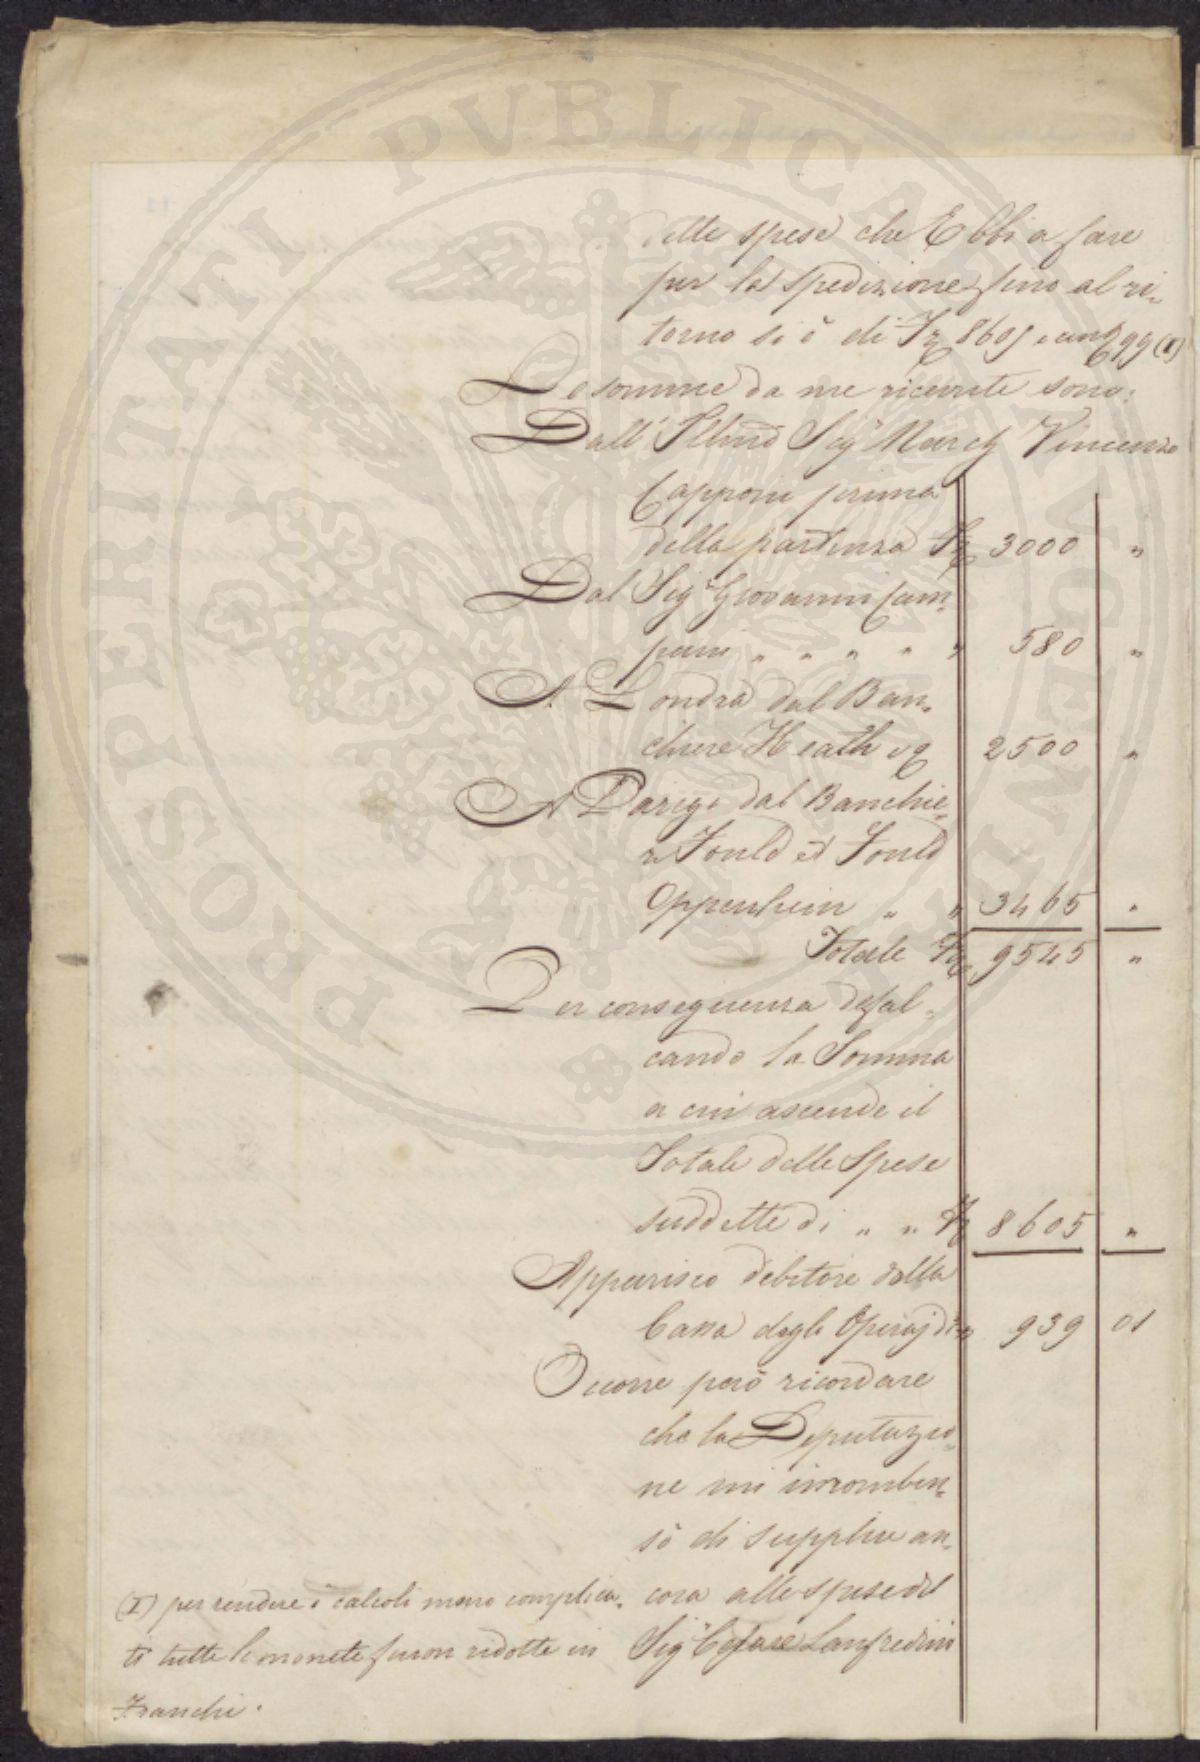 delle spese che Ebbi a fare
per la spedizione fino al ri-
torno si è di Fr 8605 e cent 99 (I)
Le somme da me ricevute sono:
Dall' Illmo Sig March Vincenzo
Capponi prima
della partenza Fr 3000 "
Dal Sig Giovanni Cam-
pani " " " " " 580 "
A Londra dal Ban-
chiere Heath 2500 "
A Parigi dal Banchie-
re Fould ed Fould
Oppenheim " " 3465 "
Totale Fr 9545 "
Per conseguenza defal-
cando la Somma
a cui ascende il
Totale delle Spese
suddette di " " Fr 8605 "
Apparisco debitore della
Cassa degli Operaj di " 939 01
Occorre però ricordare
che la Deputazio-
ne mi incomben-
sò di supplire an-
cora alle spese del
Sig Cesare Lanfredini
(I) per rendere i calcoli meno complica-
ti tutte le monete furon ridotte in
Franchi.
PROSPERITATI PVBLICAE AVGENDAE